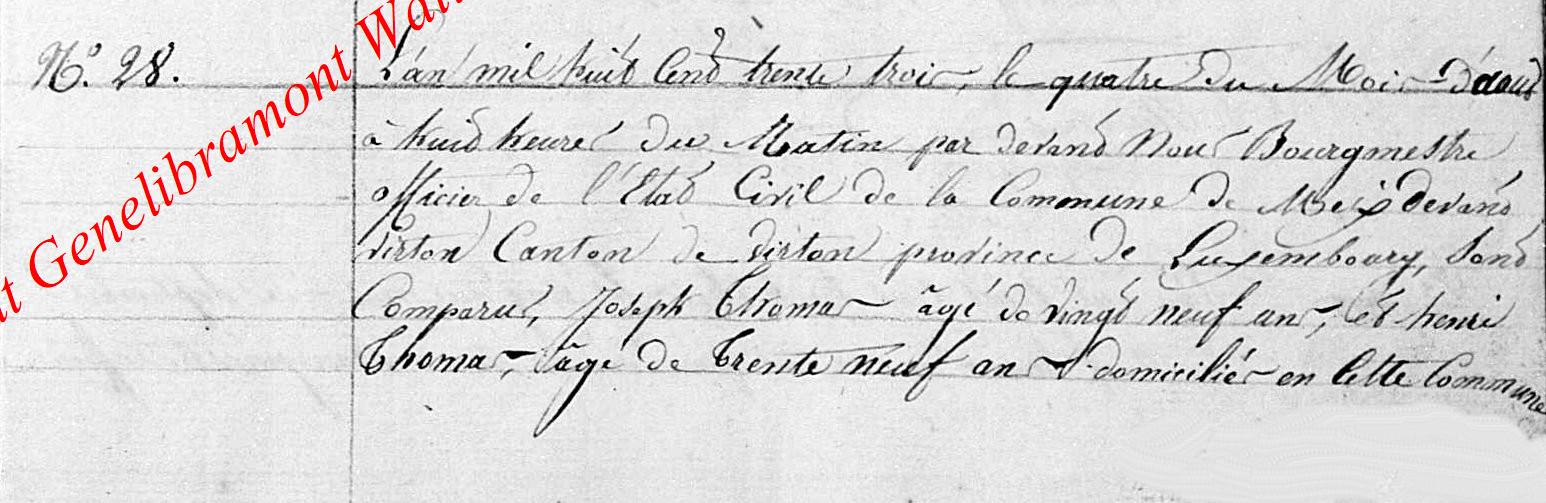 N.° 28.
L'an mil huit Cent trente trois, le quatre du Mois D'aout
à huit heures du Matin par devant Nous Bourgmestre
officier de l'Etat Civil de la Commune de Meix devant
virton Canton de virton province de Luxembourg, Sont
Comparus, Joseph Thomas âgé de vingt neuf ans, et henri
Thomas, âge de Trente neuf ans domiciliés en Cette Commune
t Genelibramont Wal